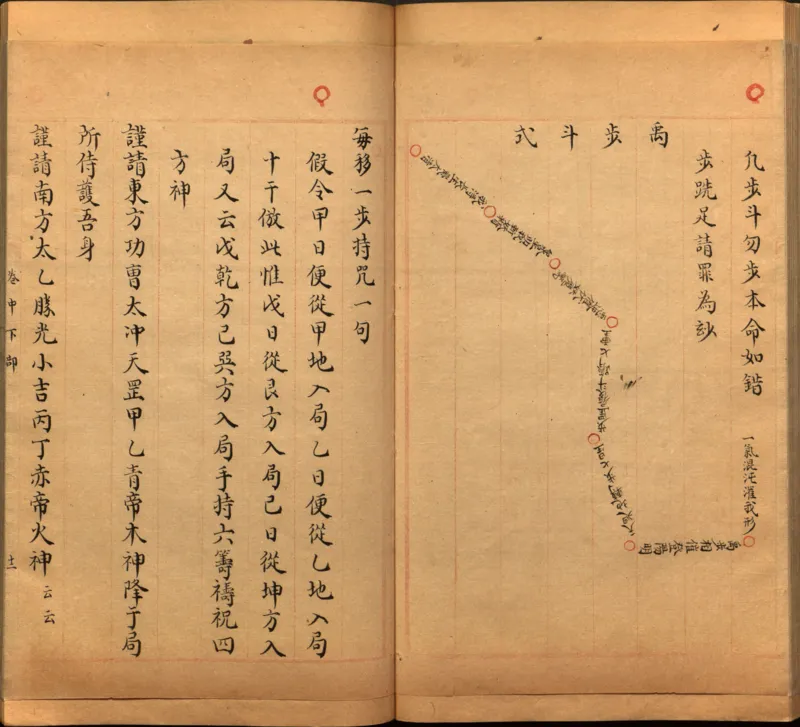 凢步斗勿步本命如錯
步跣足請罪為玅
禹步斗式
一氣混沌灌我形
禹步相催登陽明
地轉步七星
步罡履斗
每移一步持咒一句
假令甲日便從甲地入局乙日便從乙地入局
十干倣此惟戊日從艮方入局己日從坤方入
局又云戊乾方己巽方入局手持六籌禱祝四
方神
謹請東方功曹太冲天罡甲乙青帝木神降于局
所侍護吾身
謹請南方太乙勝光小吉丙丁赤帝火神云云
卷中下部
十一